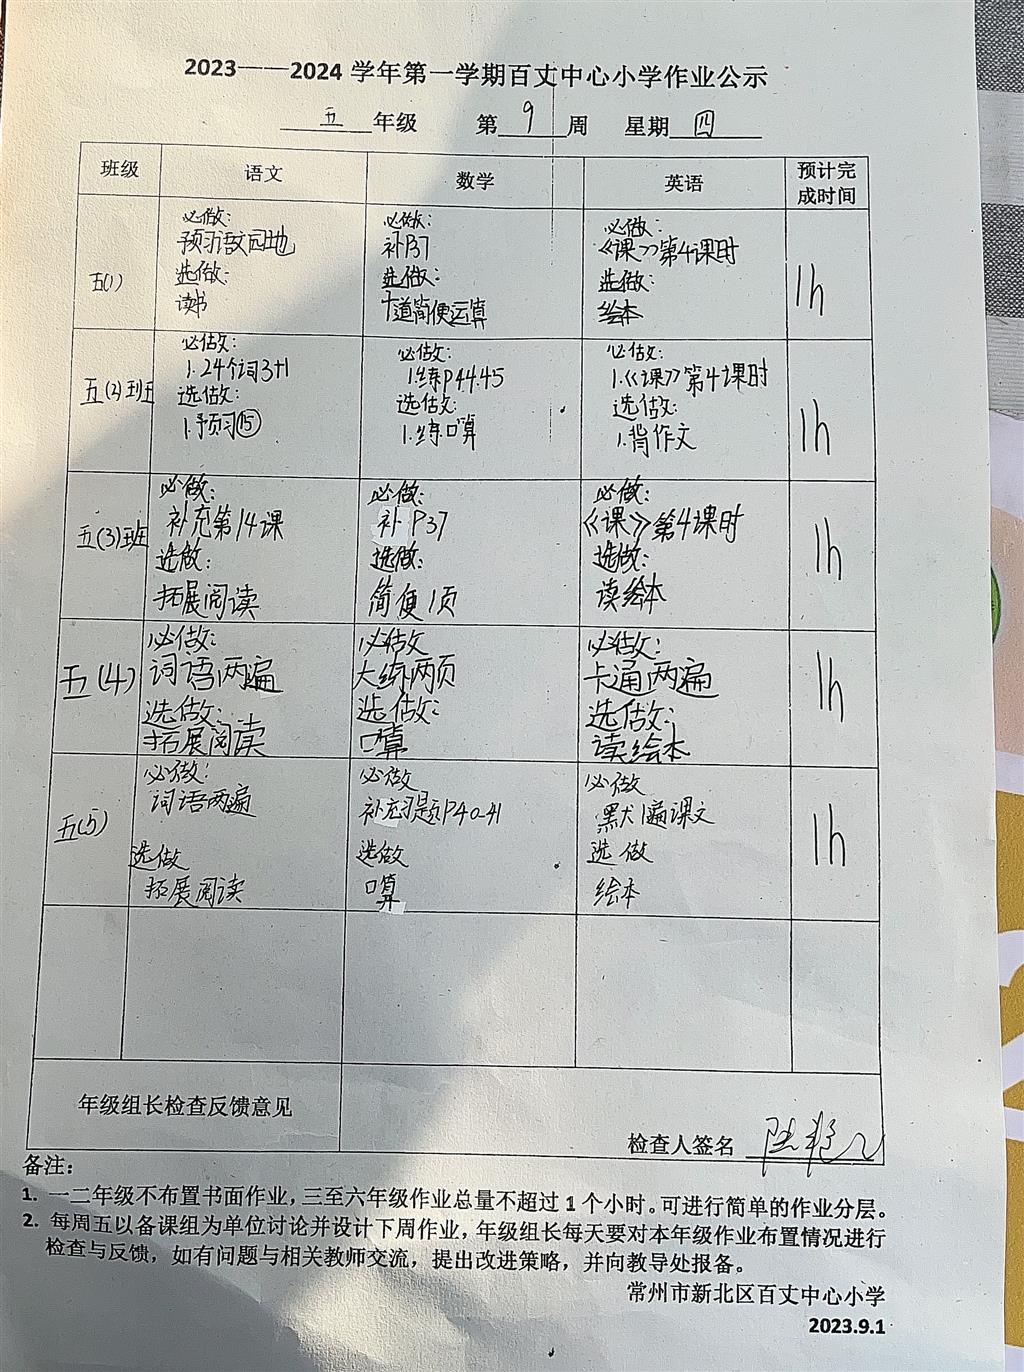 2023——2024 学年第一学期百丈中心小学作业公示
五 年级 第 9 周 星期 四
班级 语文 数学 英语 预计完成时间
五(1)
必做:
预习语文园地
选做:
读书
必做:
补P37
选做:
十道简便运算
必做:
《课》第4课时
选做:
绘本
1h
五(2)班
必做:
1.24个词3+1
选做:
1.预习⑮
必做:
1.练P44.45
选做:
1.练口算
必做:
1.《课》第4课时
选做:
1.背作文
1h
五(3)班
必做:
补充第14课
选做:
拓展阅读
必做:
补P37
选做:
简便1页
必做:
《课》第4课时
选做:
读绘本
1h
五(4)
必做:
词语两遍
选做:
拓展阅读
必做
大练两页
选做:
口算
必做:
卡通两遍
选做:
读绘本
1h
五(5)
必做:
词语两遍
选做
拓展阅读
必做
补充习题P40-41
选做
口算
必做
默1遍课文
选做
绘本
1h
年级组长检查反馈意见
检查人签名
备注:
1. 一二年级不布置书面作业，三至六年级作业总量不超过 1 个小时。可进行简单的作业分层。
2. 每周五以备课组为单位讨论并设计下周作业，年级组长每天要对本年级作业布置情况进行
检查与反馈，如有问题与相关教师交流，提出改进策略，并向教导处报备。
常州市新北区百丈中心小学
2023.9.1